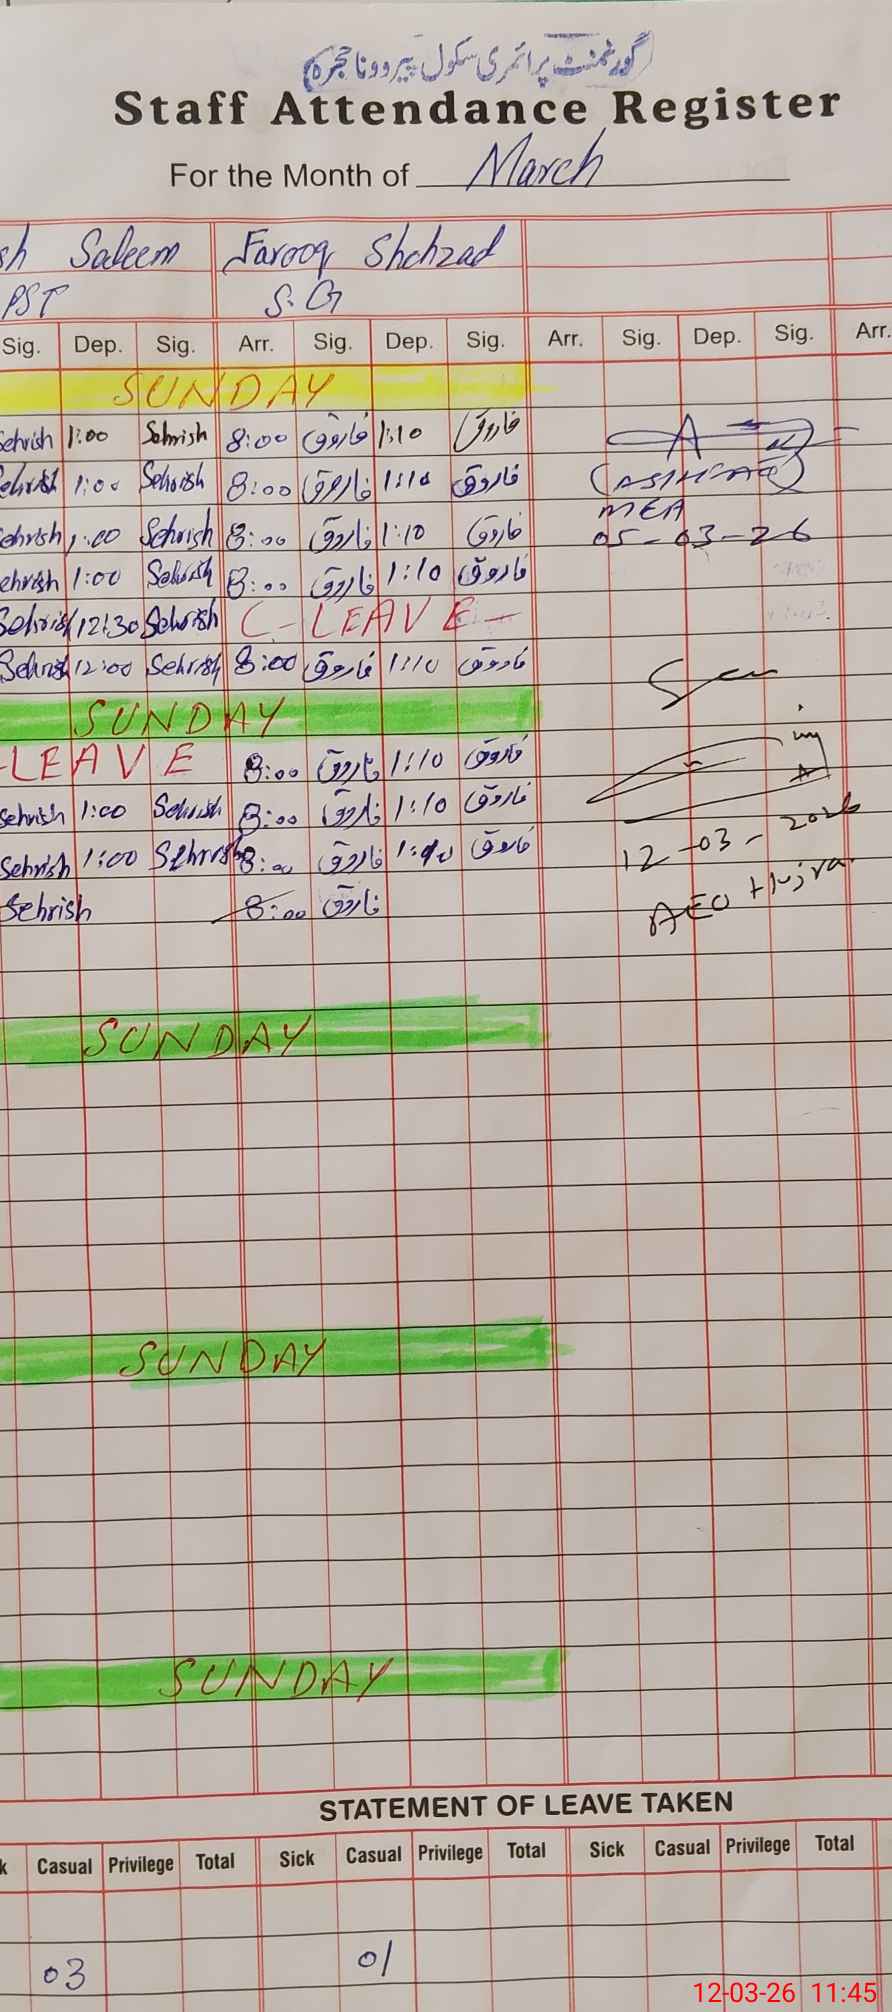 گورنمنٹ پرائمری سکول پیرووناحجرہ
Staff Attendance Register
For the Month of March
sh Saleem Farooq Shahzad
PST S.G
Sig. Dep. Sig. Arr. Sig. Dep. Sig. Arr. Sig. Dep. Sig. Arr.
SUNDAY
Sehrish 1:00 Sehrish 8:00 فاروق 1:10 فاروق
Sehrish 1:00 Sehrish 8:00 فاروق 1:10 فاروق
MEA
Sehrish 1:00 Sehrish 8:00 فاروق 1:10 فاروق 05-03-26
Sehrish 1:00 Sehrish 8:00 فاروق 1:10 فاروق
Sehrish 12:30 Sehrish C-LEAVE-
Sehrish 12:00 Sehrish 8:00 فاروق 1:10 فاروق
SUNDAY
-LEAVE 8:00 فاروق 1:10 فاروق
Sehrish 1:00 Sehrish 8:00 فاروق 1:10 فاروق
Sehrish 1:00 Sehrish 8:00 فاروق 1:10 فاروق 12-03-2026
Sehrish 8:00 فاروق AEO Hujra
SUNDAY
SUNDAY
SUNDAY
STATEMENT OF LEAVE TAKEN
k Casual Privilege Total Sick Casual Privilege Total Sick Casual Privilege Total
03 01
12-03-26 11:45